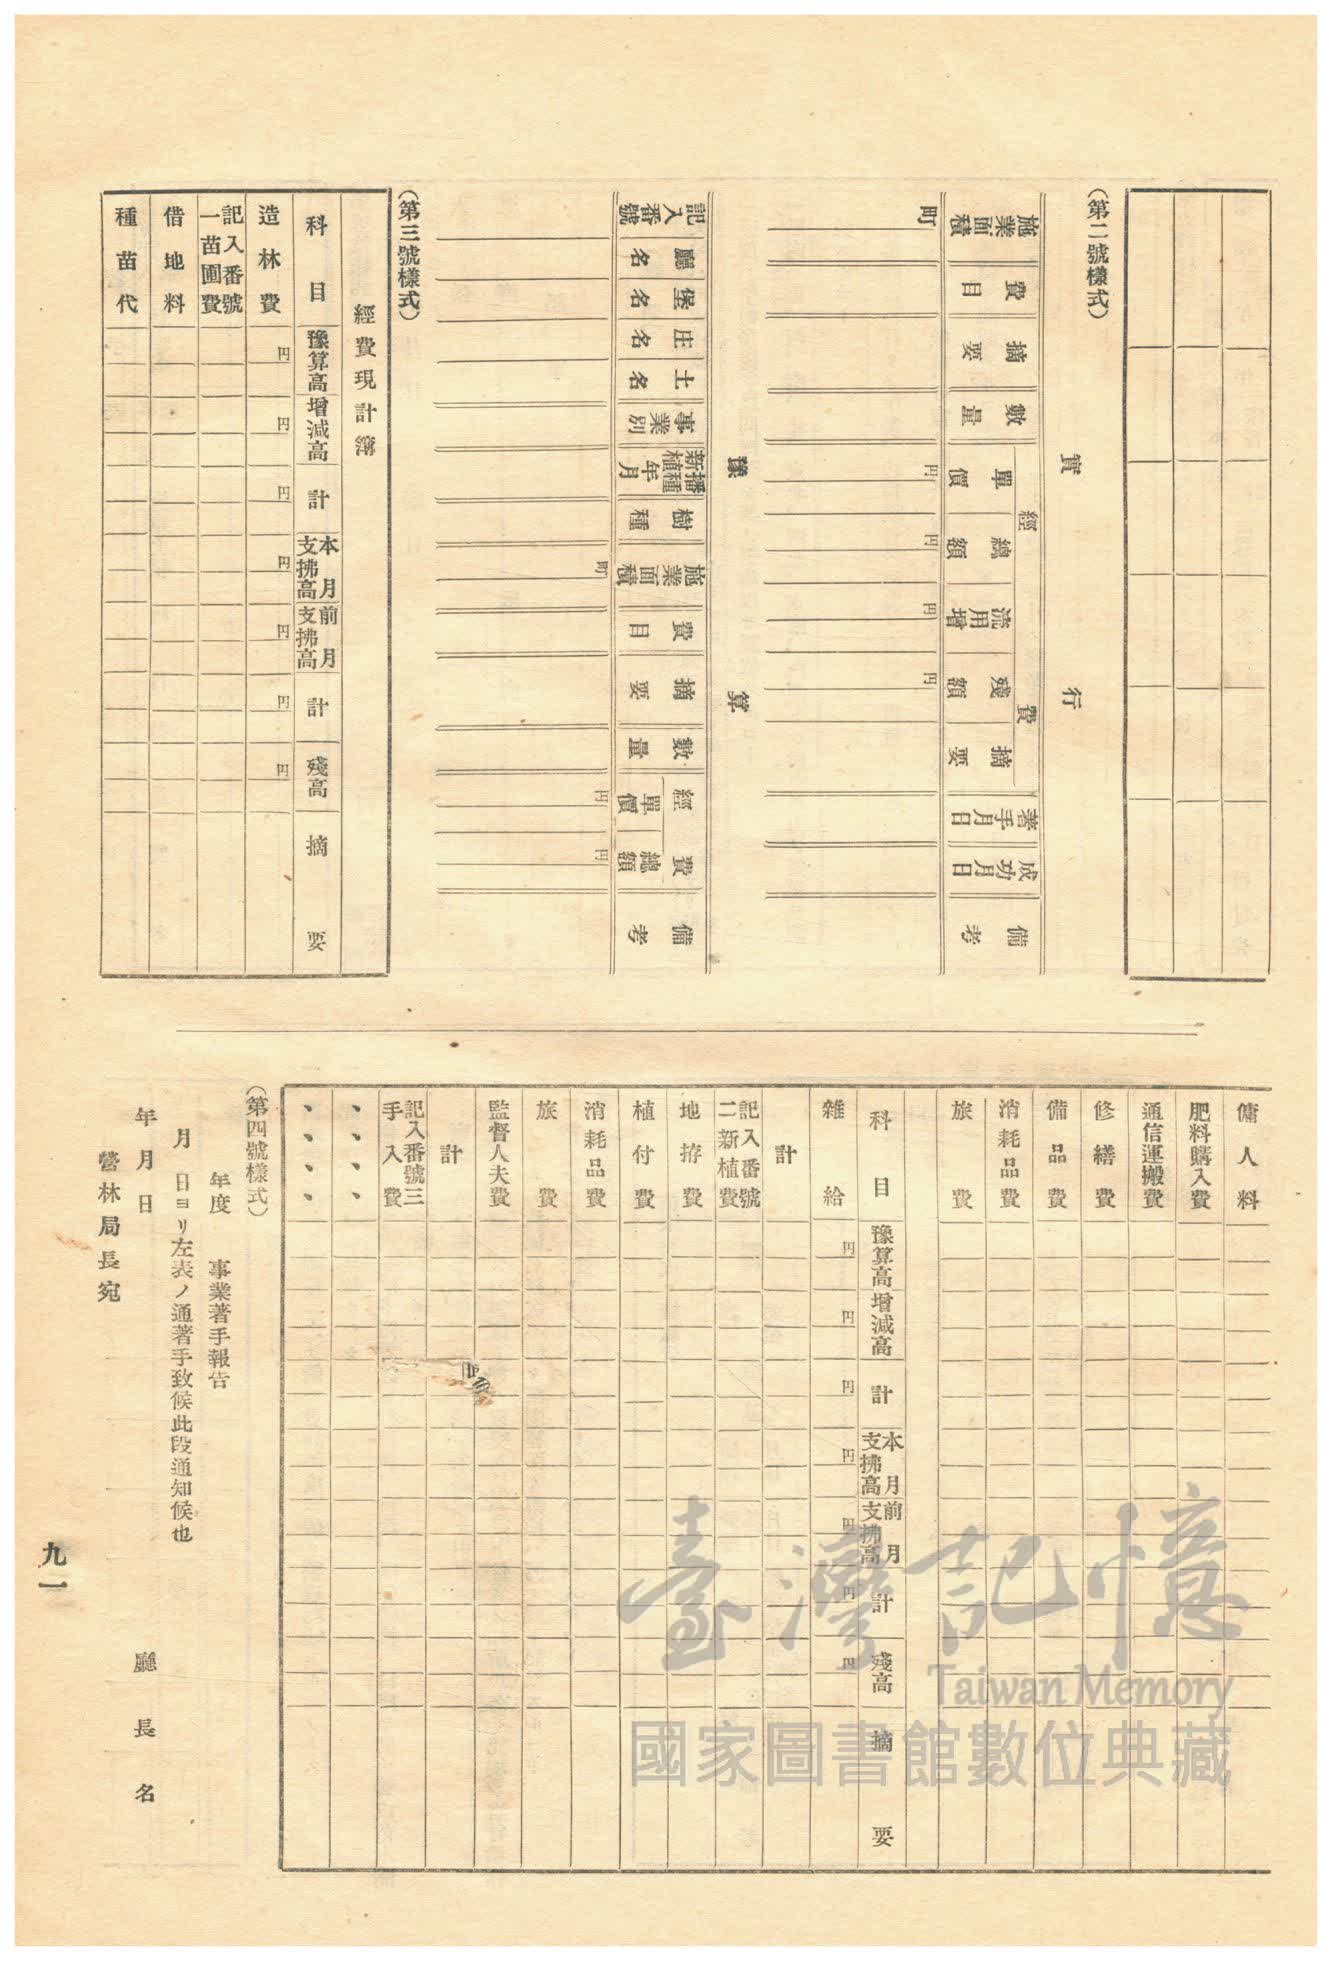 (第二號樣式)
實行
施業面積
費目
摘要
數量
經費
單價
總額
流用増
殘額
摘要
著手月日
成功月日
備考
町
円
円
円
円
豫算
記入番號
廳名
堡名
庄名
土名
事業別
新植播種年月
樹種
施業面積
費目
摘要
數量
經費
單價
總額
備考
町
円
円
(第三號樣式)
經費現計簿
科目
豫算高
増減高
計
本月支拂高
前月支拂高
計
殘高
摘要
造林費
円
円
円
円
円
円
円
記入番號一苗圃費
借地料
種苗代
傭人料
肥料購入費
通信運搬費
修繕費
備品費
消耗品費
旅費
科目
豫算高
増減高
計
本月支拂高
前月支拂高
計
殘高
摘要
雜給
円
円
円
円
円
円
円
計
記入番號二新植費
地拵費
植付費
消耗品費
旅費
監督人夫費
計
記入番號三手入費
、、、、
、、、、
(第四號樣式)
年度 事業著手報告
月 日ヨリ左表ノ通著手致候此段通知候也
年月日
廳長名
營林局長宛
九一
臺灣記憶
Taiwan Memory
國家圖書館數位典藏